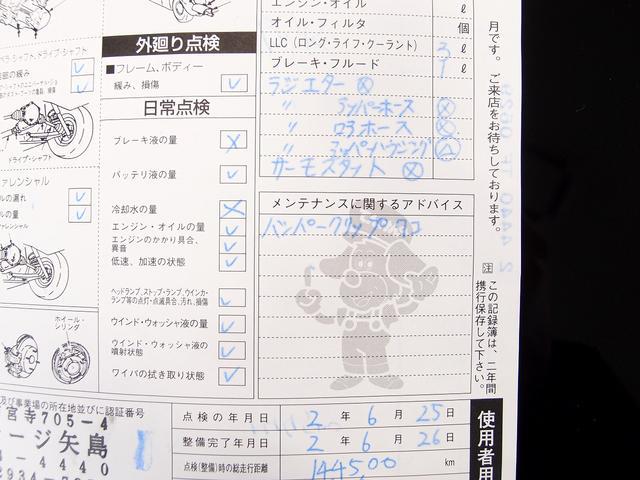 エンジン・オイル ℓ
オイル・フィルタ 個
LLC (ロング・ライフ・クーラント) 3 ℓ
ブレーキ・フルード 1 ℓ
ラジエター ⊗
〃 ラッパーホース ⊗
〃 ロアホース ⊗
サーモスタット ⊗
メンテナンスに関するアドバイス
外廻り点検
■フレーム、ボディー
緩み、損傷
日常点検
ブレーキ液の量
バッテリ液の量
冷却水の量
エンジン・オイルの量
エンジンのかかり具合、
異音
低速、加速の状態
ヘッドランプ、ストップ・ランプ、ウインカ・
ランプ等の点灯・点滅具合、汚れ、損傷
ウインド・ウォッシャ液の量
ウインド・ウォッシャ液の
噴射状態
ワイパの拭き取り状態
ドライブ・シャフト
ホイール・
シリンダ
月です。ご来店をお待ちしております。
注 この記録簿は、二年間
携行保存して下さい。
及び事業場の所在地並びに認証番号
宮寺705-4
ージ矢島
4440
2934
点検の年月日 2 年 6 月 25 日
整備完了年月日 2 年 6 月 26 日
点検(整備)時の総走行距離 144500 km
使用者用